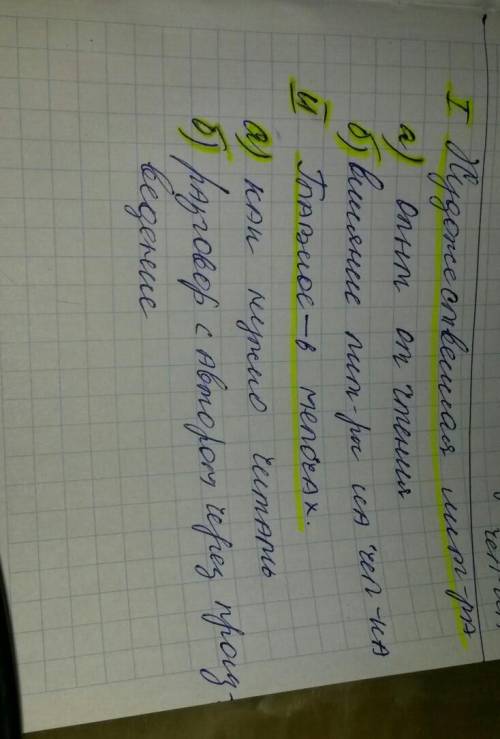 I Художественная лит-ра
а) опыт от чтения
б) влияние лит-ры на чел-ка
II Главное – в мелочах.
а) как нужно читать
б) разговор с автором через произ-
ведение